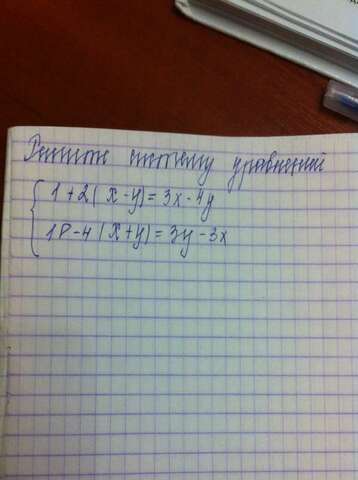 Решите систему уравнений
1+2(x-y)=3x-4y
10-4(x+y)=3y-3x